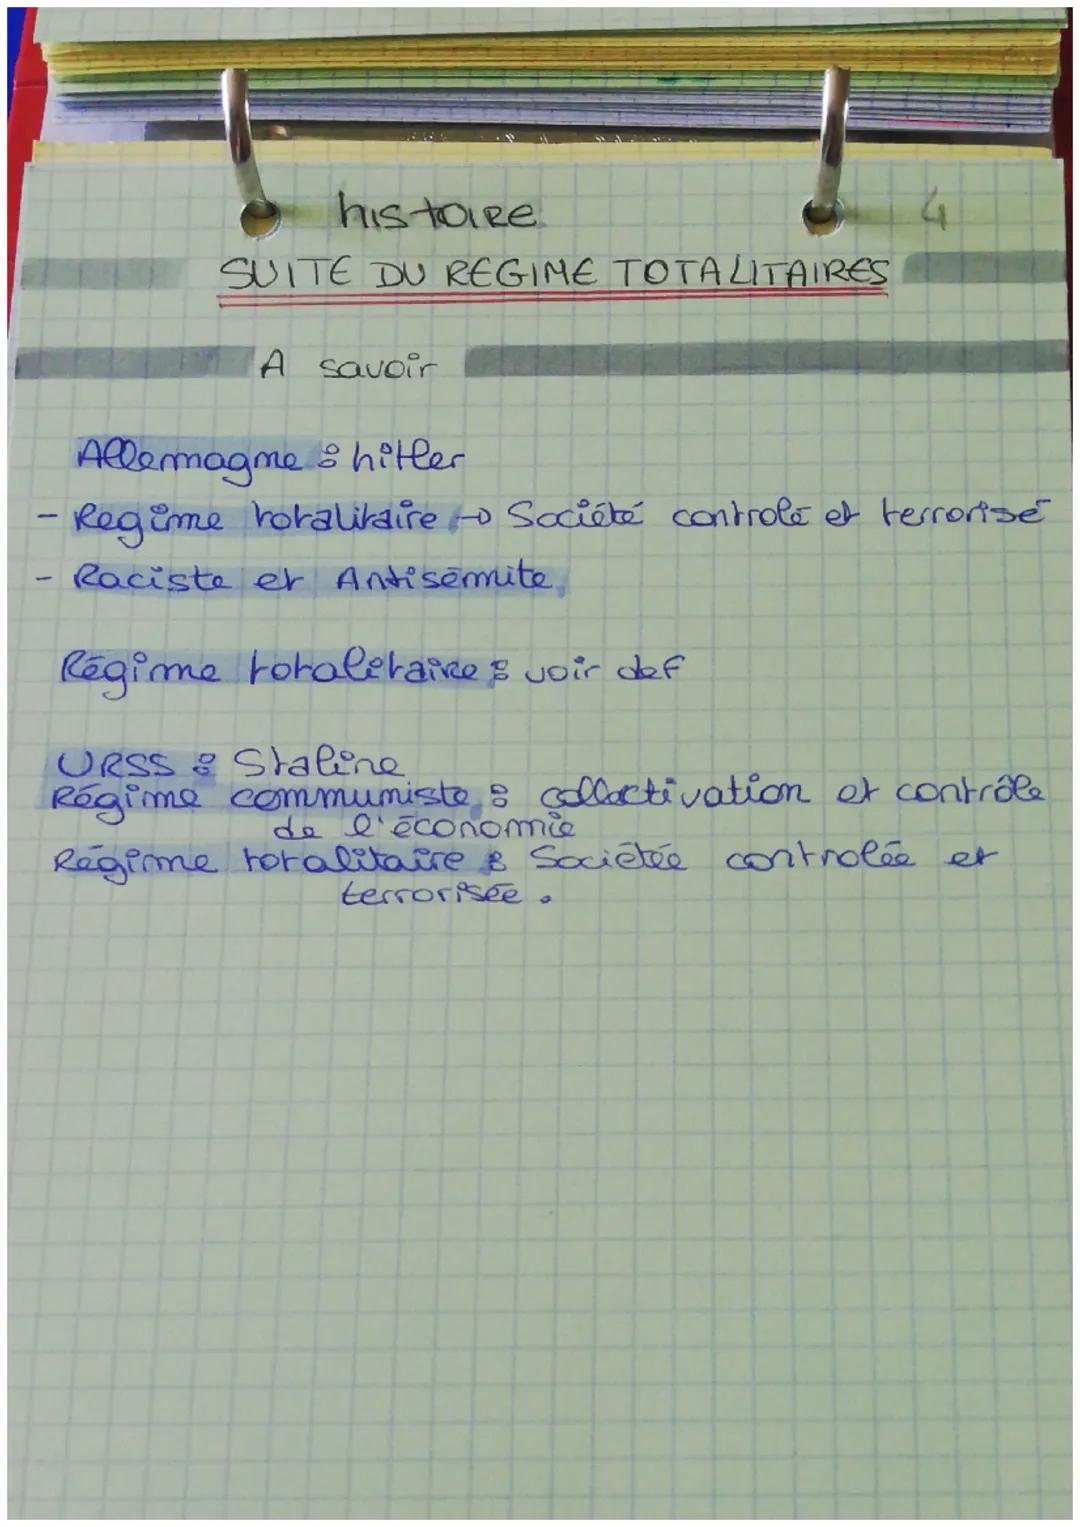 histoire 4
SUITE DU REGIME TOTALITAIRES
A savoir
Allemagne : hitler
- Regime totalitaire → Société controlé et terrorisé
- Raciste et Antisémite
Régime totalitaire : voir def
URSS : Staline
Régime communiste : collectivation et contrôle
de l'économie
Régime totalitaire : Sociétée controlée et
terrorisée.